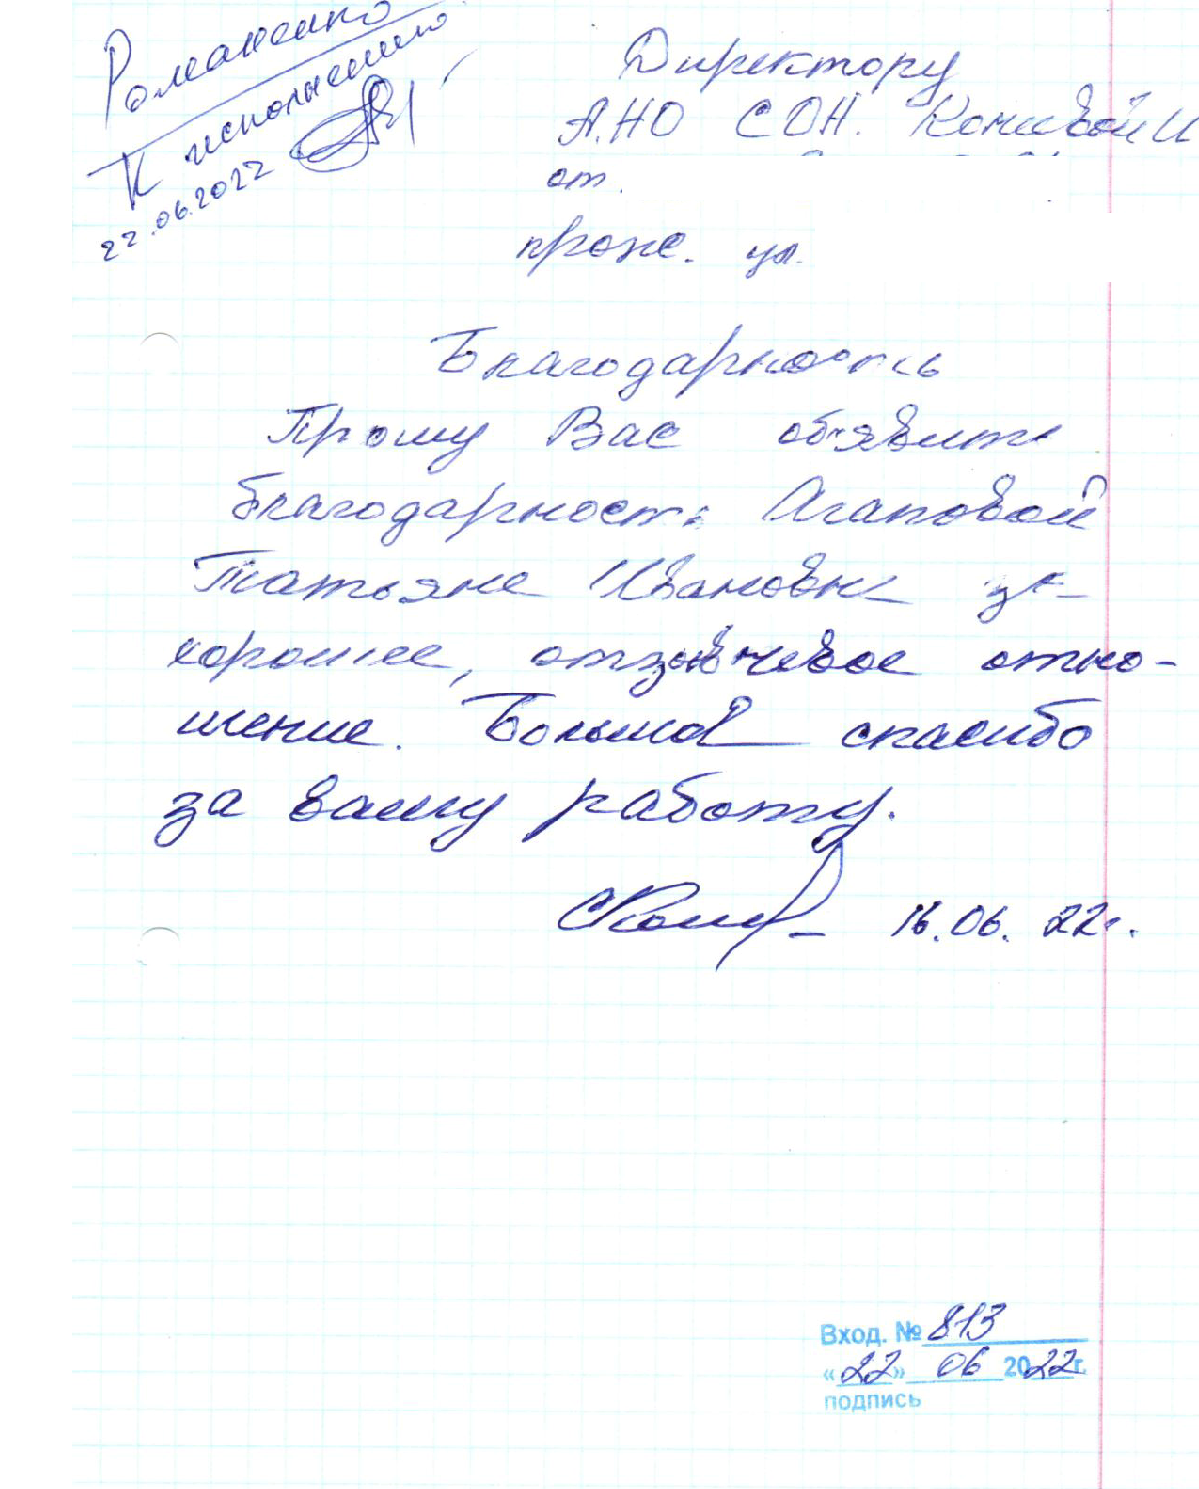 Романенко
К исполнению
22.06.2022
Директору
АНО СОН. Коневой И
от.
прож. ул.
Благодарность
Прошу Вас объявить
благодарность Агаповой
Татьяне Ивановне за
хорошее, отзывчевое отно-
шение. Большое спасибо
за вашу работу.
16.06.22г.
Вход. № 813
«22» 06 2022г.
подпись